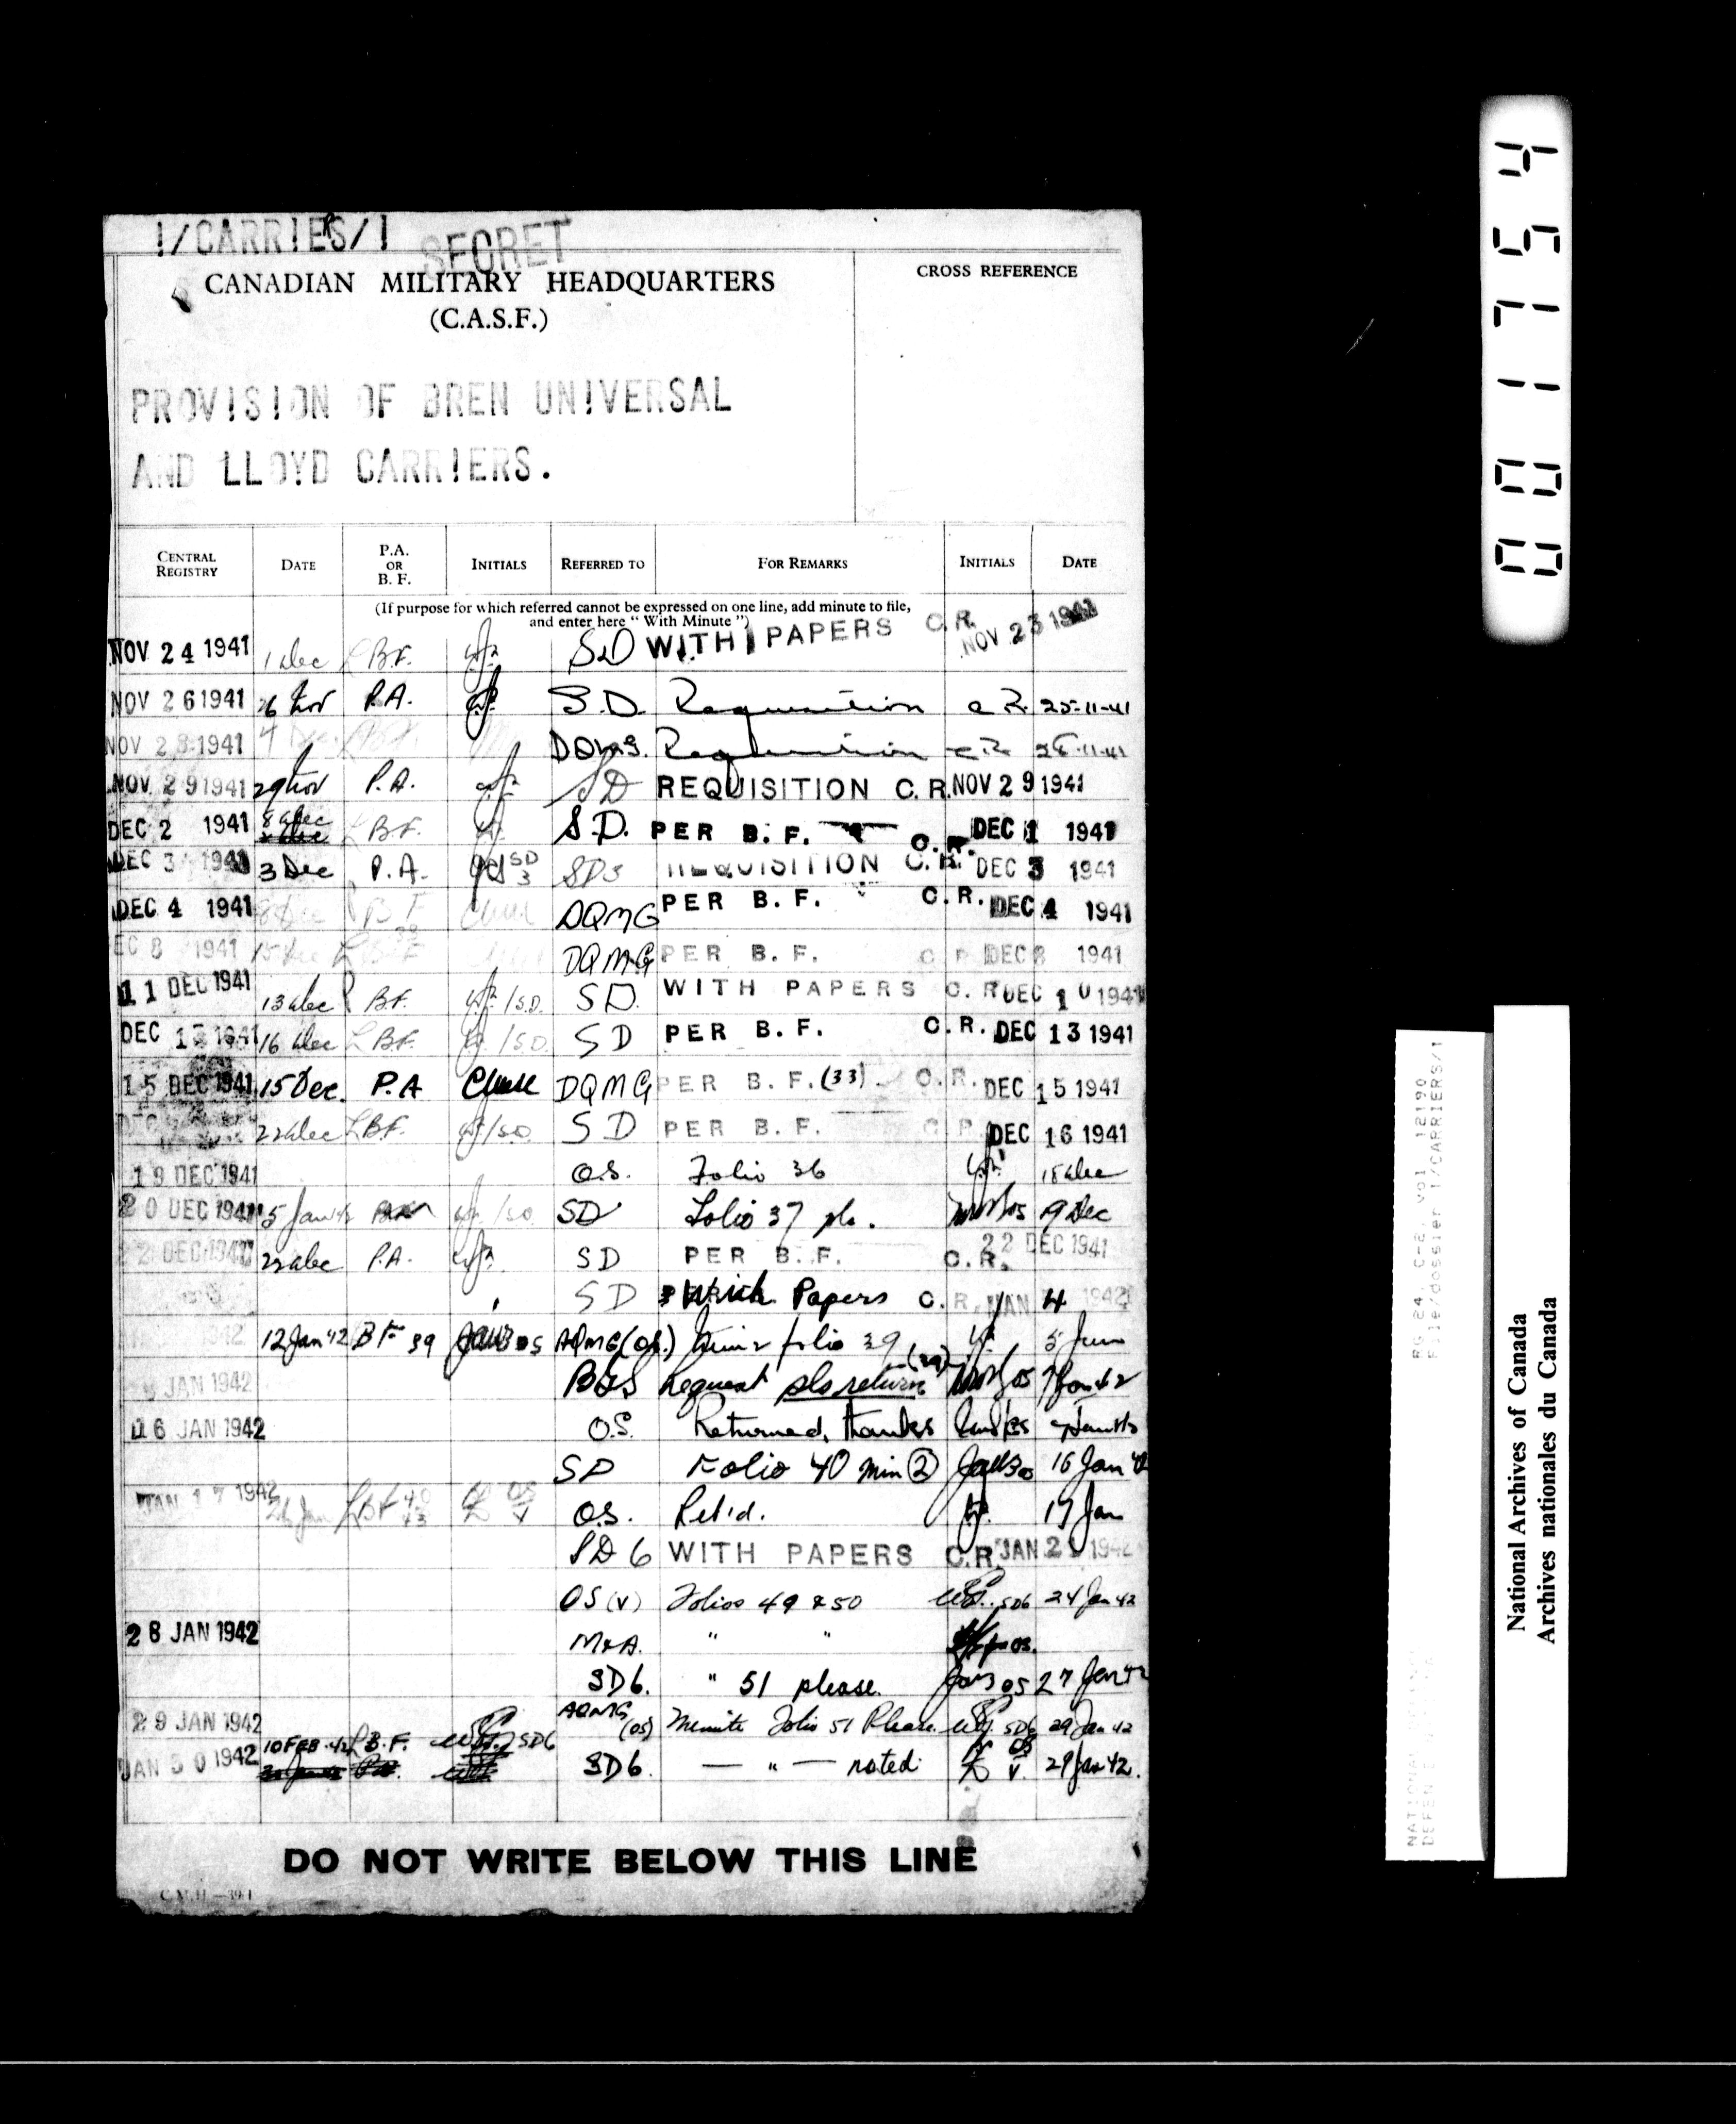 1/CARRIERS/1
SECRET
CANADIAN MILITARY HEADQUARTERS
(C.A.S.F.)
CROSS REFERENCE
PROVISION OF BREN UNIVERSAL
AND LLOYD CARRIERS.
CENTRAL REGISTRY DATE P.A. OR B. F. INITIALS REFERRED TO FOR REMARKS INITIALS DATE
(If purpose for which referred cannot be expressed on one line, add minute to file,
and enter here " With Minute ")
NOV 24 1941 1 Dec B.F. SD WITH PAPERS C.R. NOV 23 1941
NOV 26 1941 26 Nov P.A. S.D. Requisition C.R. 25-11-41
NOV 28 1941 DQMG. Requisition C.R.
NOV 29 1941 29 Nov P.A. SD REQUISITION C.R. NOV 29 1941
DEC 2 1941 8 Dec B.F. S.D. PER B.F. C.R. DEC 1 1941
DEC 3 1941 3 Dec P.A. SD3 REQUISITION C.R. DEC 3 1941
DEC 4 1941 8 Dec B F DQMG PER B.F. C.R. DEC 4 1941
DEC 8 1941 15 Dec DQMG PER B.F. C.R. DEC 8 1941
11 DEC 1941 13 Dec B.F. /S.D. SD. WITH PAPERS C.R. DEC 10 1941
DEC 13 1941 16 Dec B.F. /S.D. SD PER B.F. C.R. DEC 13 1941
15 DEC 1941 15 Dec. P.A DQMG PER B.F. (33) C.R. DEC 15 1941
DEC 22 Dec B.F. /S.D. SD PER B.F. C.R. DEC 16 1941
19 DEC 1941 O.S. Folio 36 18 Dec
20 DEC 1941 5 Jan 42 /S.D. SD Folio 37 pls. 19 Dec
22 DEC 1941 22 Dec P.A. SD PER B.F. C.R. 22 DEC 1941
SD With Papers C.R. JAN 4 1942
1942 12 Jan '42 B F 39 AQMG (OS.) Min 2 folio 39 5 Jan
JAN 1942 BGS Request pls return (39) 7 Jan 42
16 JAN 1942 O.S. Returned, thanks
SD Folio 40 min ② 16 Jan 42
JAN 17 1942 O.S. Ret'd. 17 Jan
SD 6 WITH PAPERS C.R. JAN 21 1942
OS (V) Folios 49 & 50 SD6 24 Jan 42
28 JAN 1942 M&A. " "
SD6. " 51 please. OS 27 Jan 42
29 JAN 1942 AQMG (OS) Minute Folio 51 Please. SD6 29 Jan 42
JAN 30 1942 10 FEB. 42 B.F. SD6 SD6. — " — noted 29 Jan 42.
DO NOT WRITE BELOW THIS LINE
C.M.H.—39/1
0017154
RG 24, C-2, vol 12190
File/dossier 1/CARRIERS/1
NATIONAL
DEFENCE
National Archives of Canada
Archives nationales du Canada